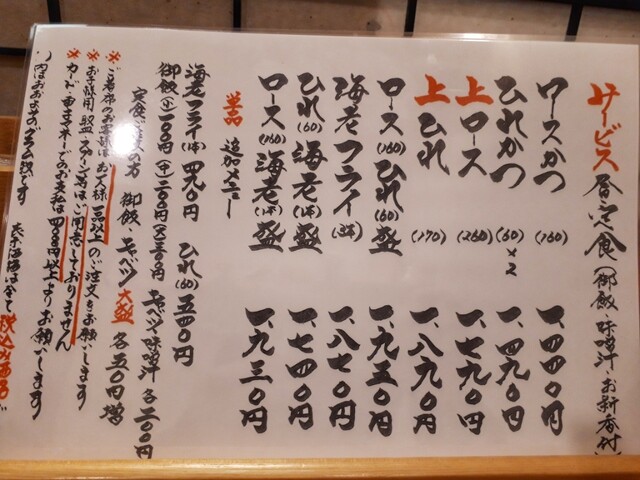 サービス昼定食(御飯・味噌汁・お新香付)
ロースかつ (160) 一、四四〇円
ひれかつ (60)×2 一、四九〇円
上ロース (260) 一、七九〇円
上ひれ (170) 一、八九〇円
ロース(160)ひれ(60)盛 一、九五〇円
海老フライ (3本) 一、八七〇円
ひれ(60)海老(1本)盛 一、七四〇円
ロース(160)海老(1本)盛 一、九三〇円
単品 追加メニュー
海老フライ(1本) 四九〇円 ひれ(60) 五四〇円
御飯(小)一〇〇円(中)二〇〇円(大)三〇〇円 キャベツ・味噌汁 各二〇〇円
定食ご注文の方 御飯・キャベツ 大盛 各五〇円増
※ご着席のお客様はお人様一品以上のご注文をお願いします
※お子様用取皿・スプーン等はご用意しておりません
※カード・電子マネーでのお支払は四〇〇〇円以上よりお願いします
( )内はおおよそのグラム数です 表示価格は全て税込み価格